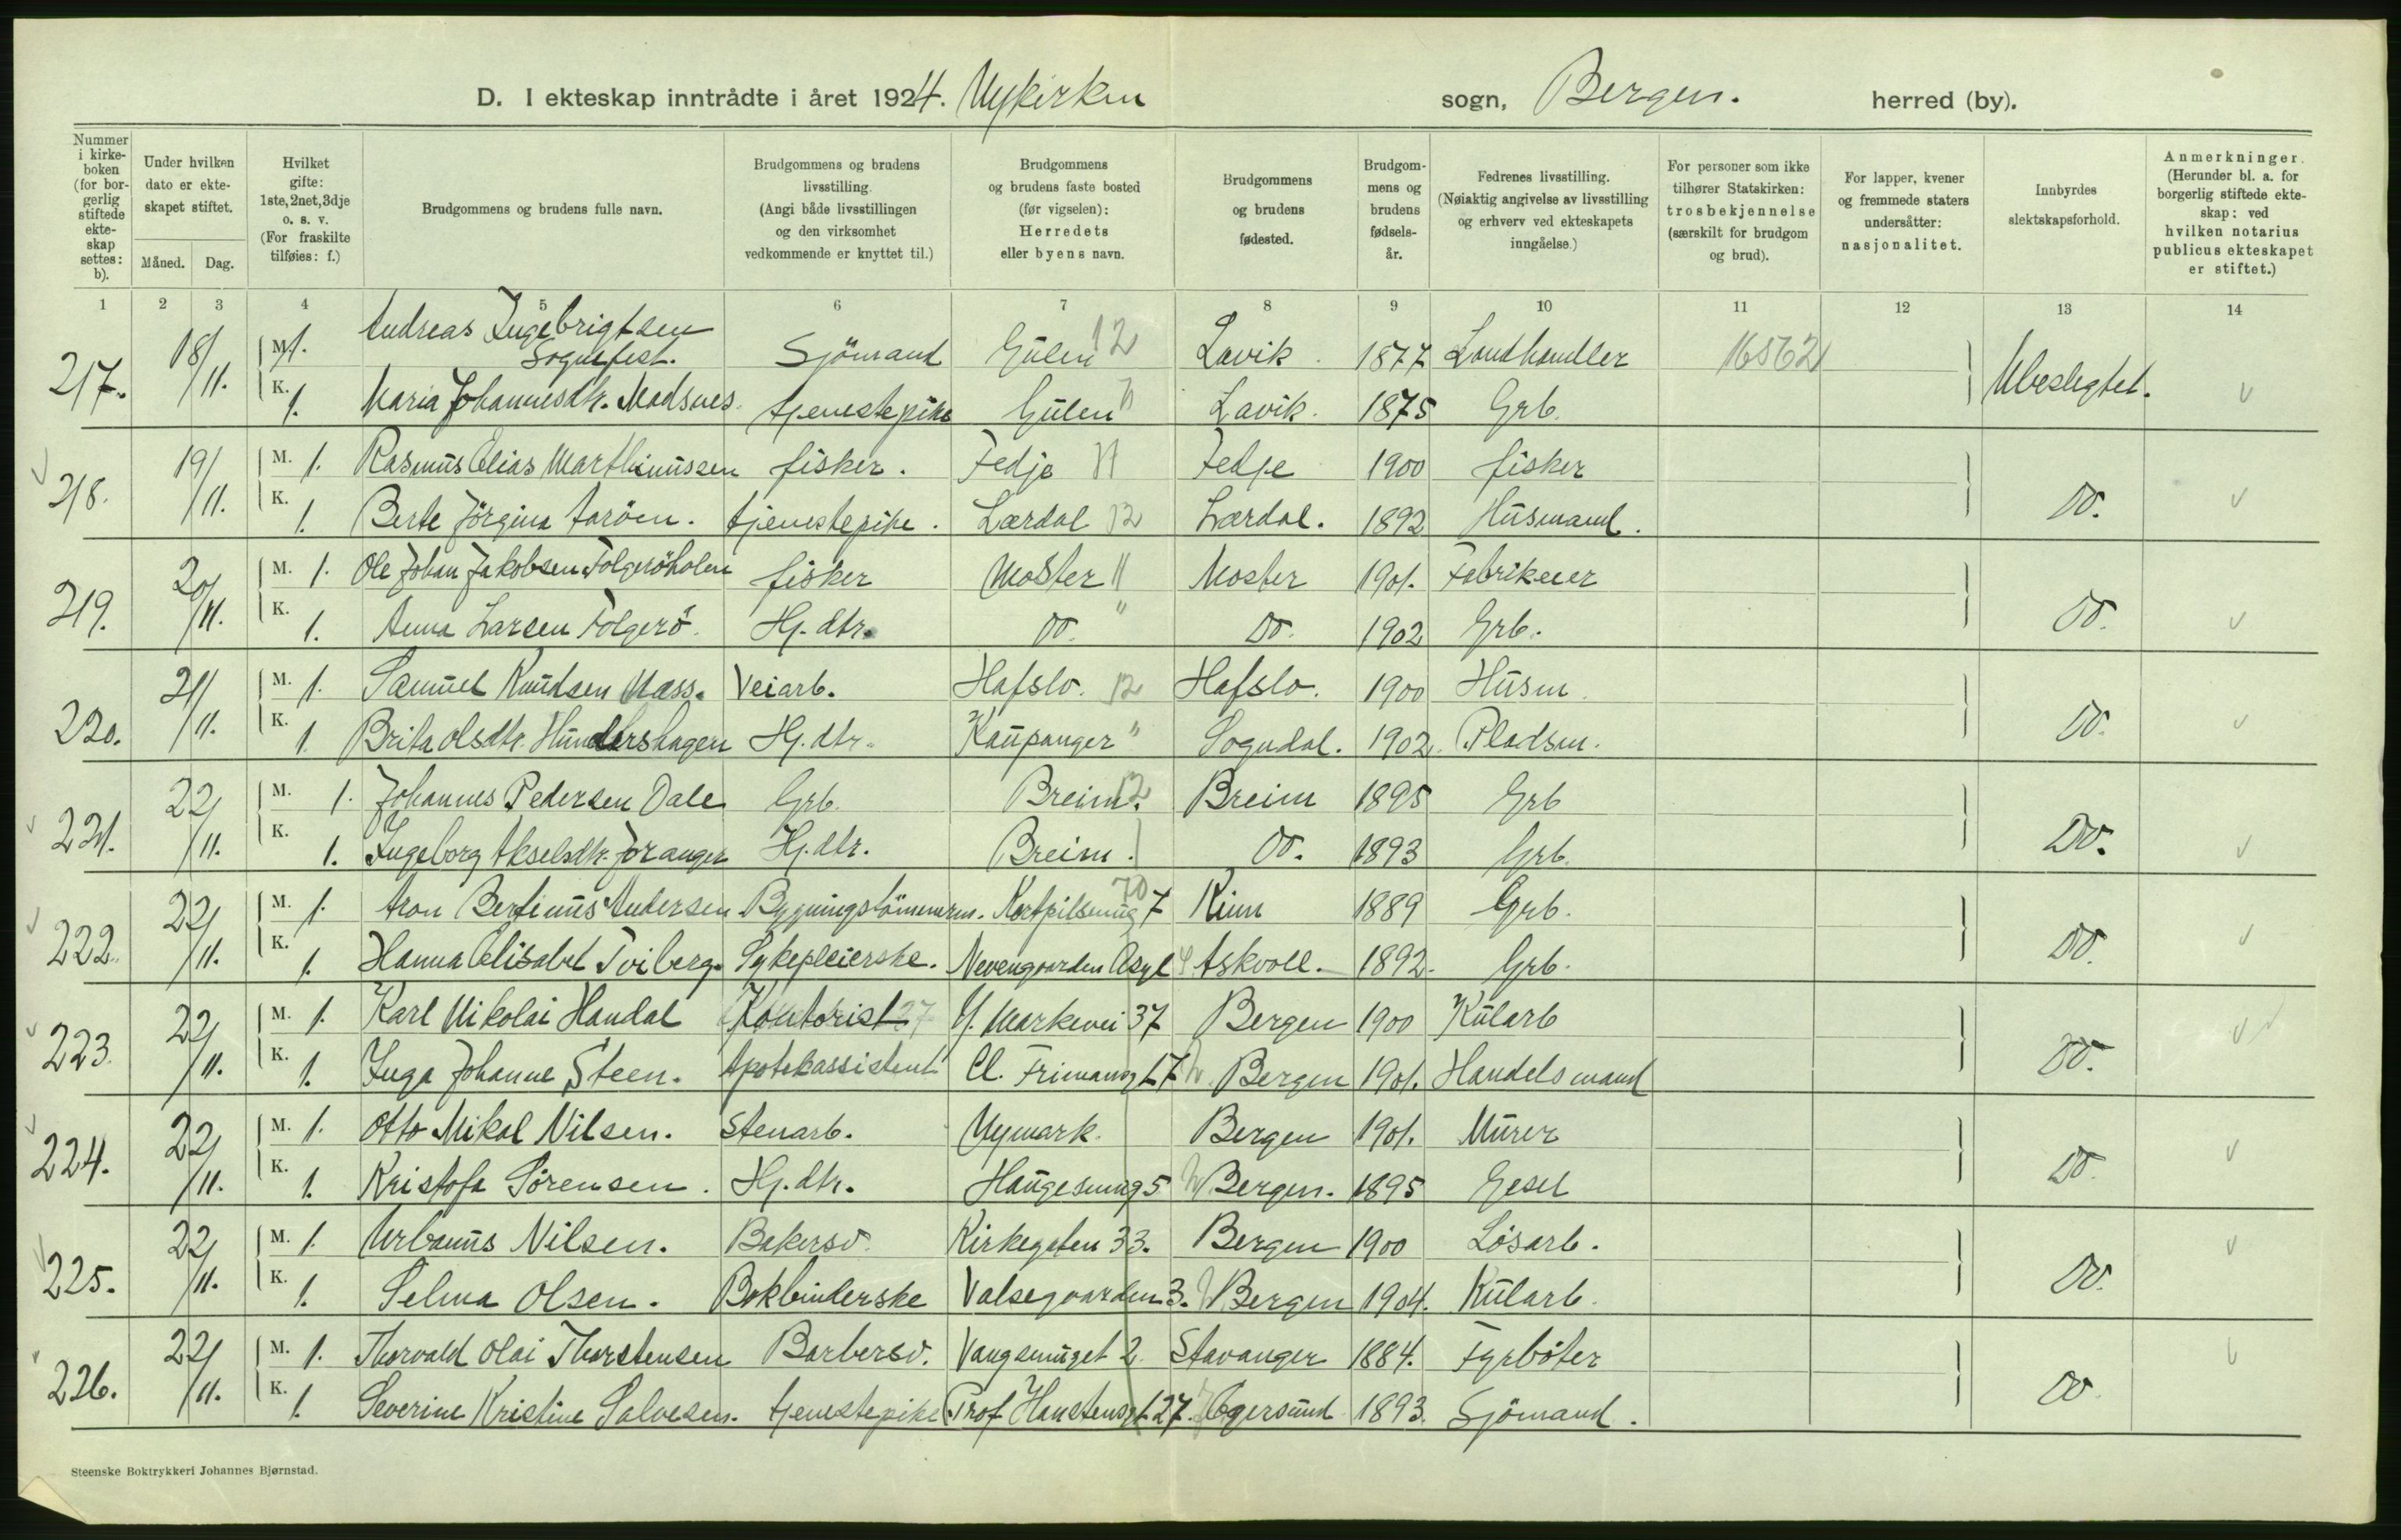 D. I ekteskap inntrådte i året 1924. Nykirken sogn, Bergen. herred (by).
Nummer i kirke-boken (for bor-gerlig stiftede ekte-skap settes: b).
Under hvilken dato er ekte-skapet stiftet.
Måned. Dag.
Hvilket gifte: 1ste, 2net, 3dje o. s. v. (For fraskilte tilføies: f.)
Brudgommens og brudens fulle navn.
Brudgommens og brudens livsstilling. (Angi både livsstillingen og den virksomhet vedkommende er knyttet til.)
Brudgommens og brudens faste bosted (før vigselen): Herredets eller byens navn.
Brudgommens og brudens fødested.
Brudgom-mens og brudens fødsels-år.
Fedrenes livsstilling. (Nøiaktig angivelse av livsstilling og erhverv ved ekteskapets inngåelse.)
For personer som ikke tilhører Statskirken: trosbekjennelse (særskilt for brudgom og brud).
For lapper, kvener og fremmede staters undersåtter: nasjonalitet.
Innbyrdes slektskapsforhold.
Anmerkninger. (Herunder bl. a. for borgerlig stiftede ekte-skap: ved hvilken notarius publicus ekteskapet er stiftet.)
1 2 3 4 5 6 7 8 9 10 11 12 13 14
217. 18/11. M. 1. Andreas Ingebrigtsen Sognefest. Sjömand Gulen 12 Lavik 1877 Landhandler 16562 Ubeslegtet.
K. 1. Maria Johannesdtr. Madsnes. tjenestepike Gulen Lavik. 1875 Grb.
218. 19/11. M. 1. Rasmus Elias Marthinussen fisker. Fedje 11 Fedje 1900 fisker Do.
K. 1. Berte Jörgina Aaröen. tjenestepike. Lærdal 12 Lærdal. 1892 Husmand.
219. 20/11. M. 1. Ole Johan Jakobsen Folgeröholen fisker Moster 11 Moster 1901. Fabrikeier Do.
K. 1. Anna Larsen Folgerö. Hj. dtr. Do. " Do. 1902 Grb.
220. 21/11. M. 1. Samuel Knudsen Næss. Veiarb. Hafslo. 12 Hafslo. 1900 Husm. Do.
K. 1. Brita Olsdtr. Hundershagen Hj. dtr. Kaupanger " Sogndal. 1902. Pladsm.
221. 22/11. M. 1. Johannes Pedersen Dale Grb. Breim. 12 Breim 1895 Grb Do.
K. 1. Ingeborg Akselsdtr. Joranger Hj. dtr. Breim. Do. 1893 Grb.
222. 22/11. M. 1. Aron Bertinus Andersen Bygningstömmerm. Kortpilsmug 7 Kinn 1889 Grb. Do.
K. 1. Hanna Elisabet Tviberg. Sykepleierske. Nevengaarden Asyl Askvoll. 1892. Grb.
223. 22/11. M. 1. Karl Nikolai Handal Kontorist 27 Y. Markevei 37 Bergen 1900 Kularb Do.
K. 1. Inga Johanne Steen. Apotekassistent Cl. Frimansgt 7 Bergen 1901. Handelsmand
224. 22/11. M. 1. Otto Mikal Nilsen. Stenarb. Nymark. Bergen 1901. Murer Do.
K. 1. Kristofa Sörensen. Hj. dtr. Haugesung 5 Bergen. 1895 Gesel
225. 22/11. M. 1. Urbanus Nilsen. Bakersv. Kirkegaten 33. Bergen 1900 Lösarb. Do.
K. 1. Selma Olsen. Bokbinderske Valsegaarden 3. Bergen 1904. Kularb.
226. 22/11. M. 1. Thorvald Olai Thorstensen Barbersv. Vangsmuget 2. Stavanger 1884. Fyrböter Do
K. 1. Severine Kristine Salvesen. tjenestepike Prof Hansteensgt 27. Egersund 1893. Sjömand.
Steenske Boktrykkeri Johannes Bjørnstad.